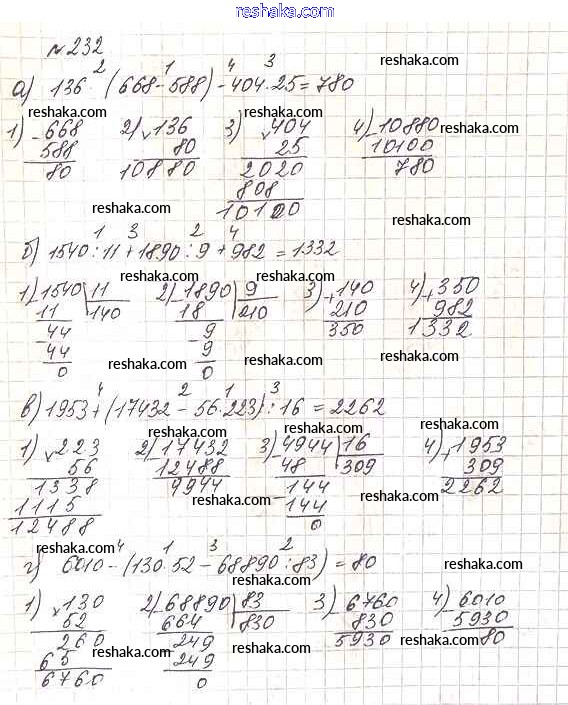 www.reshaka.com
№ 232
2 1 4 3
а) 136 · (668-588) - 404·25 = 780
reshaka.com
reshaka.com reshaka.com reshaka.com
1) - 668 2) × 136 3) × 404 4) - 10880
588 80 25 10100
80 10880 2020 780
808
10100
reshaka.com reshaka.com reshaka.com
1 3 2 4
б) 1540 : 11 + 1890 : 9 + 982 = 1332
reshaka.com reshaka.com reshaka.com
1) - 1540 | 11 2) - 1890 | 9 3) + 140 4) + 350
11 140 18 210 210 982
- 44 - 9 350 1332
44 9
0 0
reshaka.com reshaka.com reshaka.com
4 2 1 3
в) 1953 + (17432 - 56·223) : 16 = 2262
reshaka.com reshaka.com reshaka.com
1) × 223 2) - 17432 3) - 4944 | 16 4) + 1953
56 12488 48 309 309
1338 9944 - 144 2262
1115 144
12488 0
reshaka.com reshaka.com
reshaka.com reshaka.com
4 1 3 2
г) 6010 - (130·52 - 68890 : 83) = 80
reshaka.com reshaka.com
1) × 130 2) - 68890 | 83 3) - 6760 4) - 6010
52 664 830 830 5930
260 - 249 5930 80
65 249
6760 0
reshaka.com reshaka.com reshaka.com